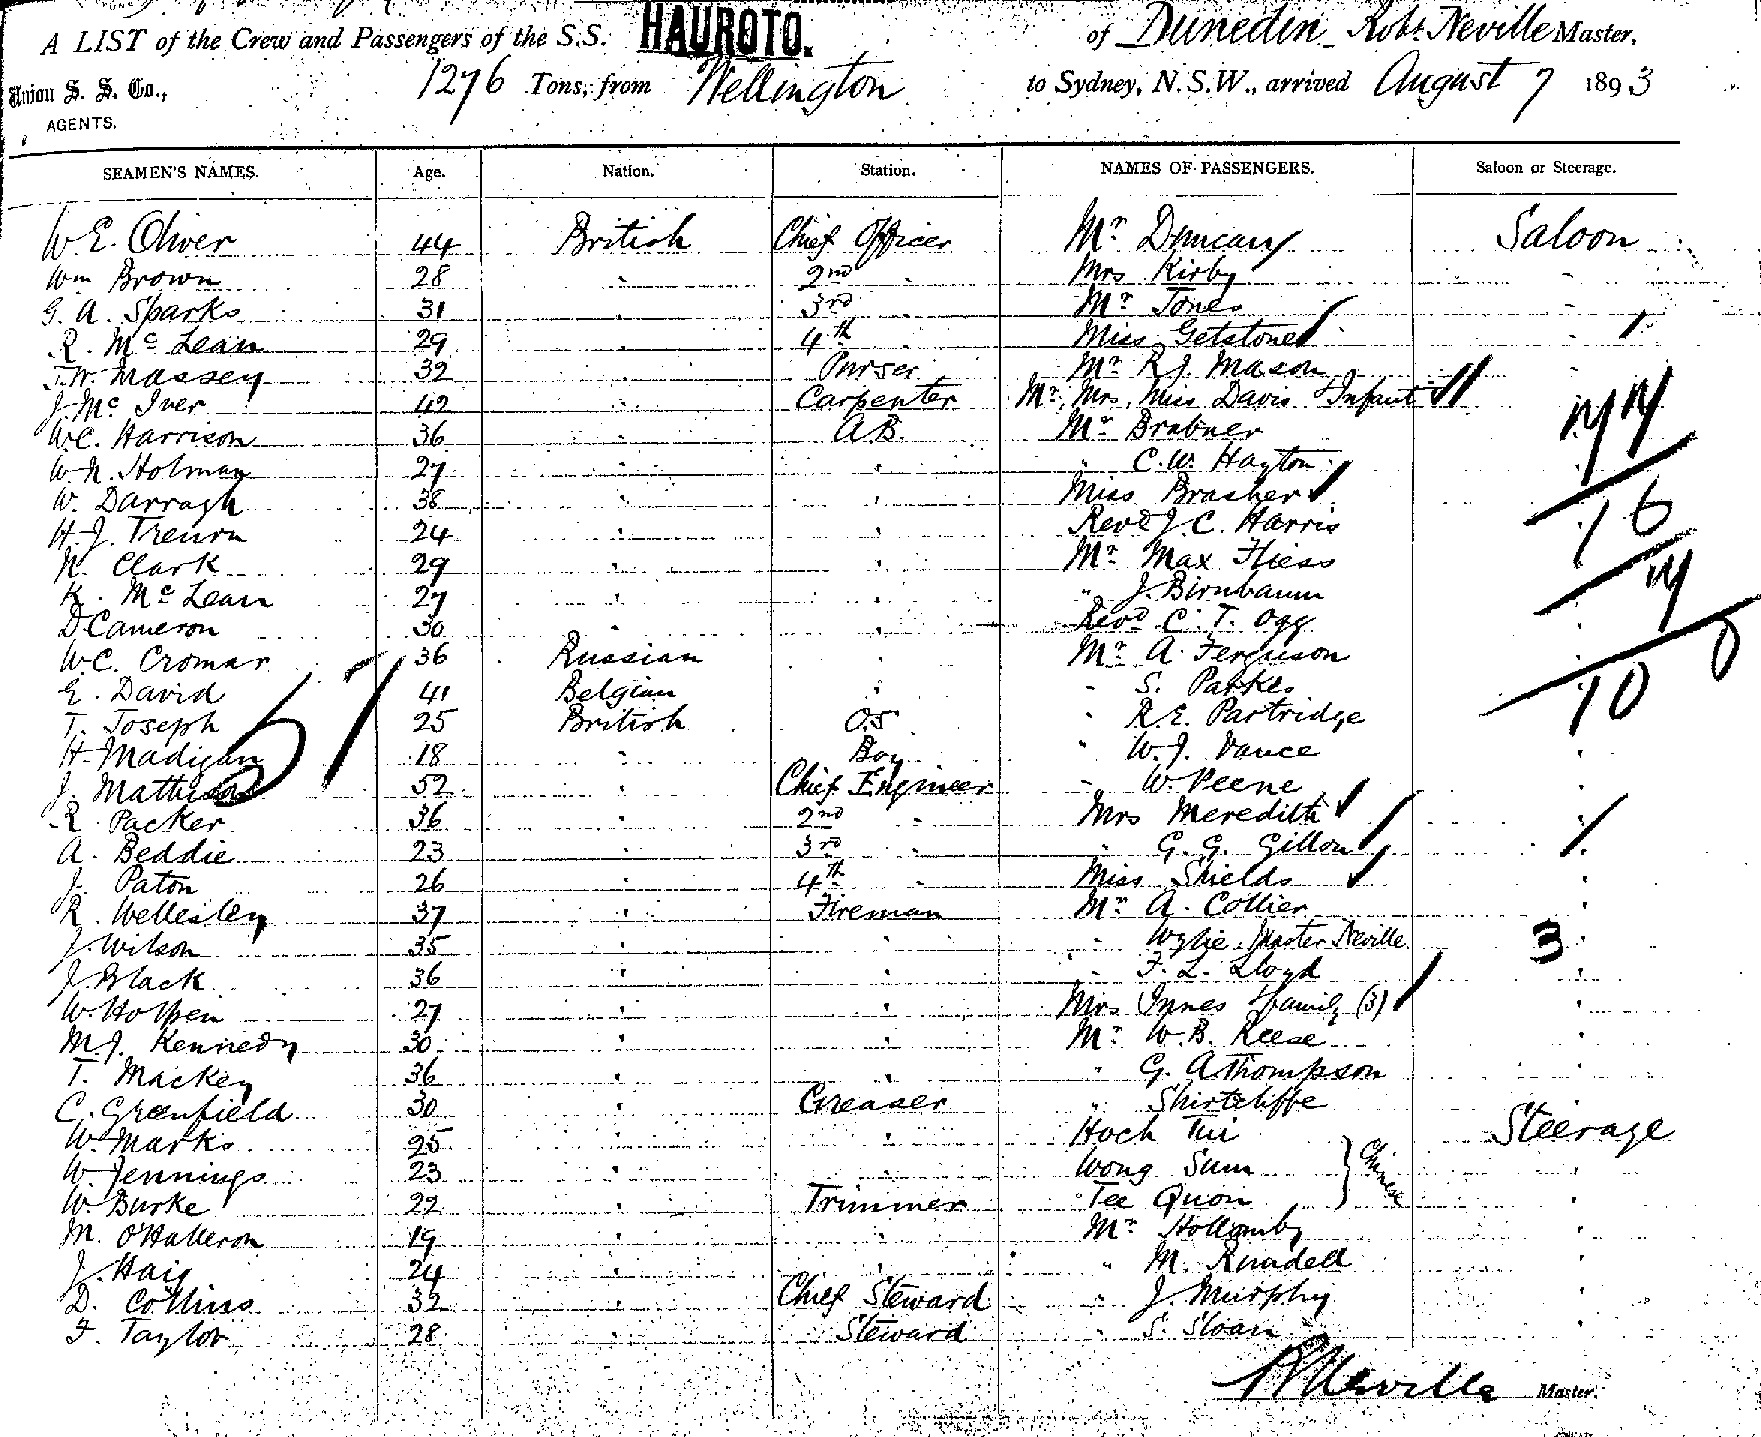 A LIST of the Crew and Passengers of the S.S. HAUROTO. of Dunedin Robt Neville Master,
Union S. S. Co., 1276 Tons, from Wellington to Sydney, N.S.W., arrived August 7 1893
AGENTS.
SEAMEN'S NAMES. Age. Nation. Station. NAMES OF PASSENGERS. Saloon or Steerage.
W. E. Oliver 44 British Chief Officer Mr Duncan Saloon
Wm Brown 28 " 2nd " Mrs Kirby "
G. A. Sparks 31 " 3rd " Mr Jones "
R. Mc Lean 29 " 4th " Miss Getstone "
J. W. Massey 32 " Purser Mr R J. Mason
J. Mc Iver 42 " Carpenter Mr, Mrs, Miss Davis + Infant
W. C. Harrison 36 " A.B. Mr Brabner 14 14
W. N. Holman 27 " " " C. W. Hayton
W. Darragh 38 " " Miss Brasher 16
H. J. 24 " " Revd J. C. Harris
N. Clark 29 " " Mr Max Fliess 14
K. Mc Lean 27 " " " J. Birnbaum
D Cameron 30 " " Revd C. T. Ogg
W. C. Cromar 36 Russian " Mr A. Ferguson
E. David 41 Belgian " " S. Parkes 10
T. Joseph 25 British O.S " R. E. Partridge
H. Madigan 18 " Boy " W. J. Vance "
J. Mathison 52 " Chief Engineer " W. Peene "
R. Packer 36 " 2nd " Mrs Meredith
A. Beddie 23 " 3rd " " G. G. Gillon "
J. Paton 26 " 4th " Miss Shields "
R. Wellesley 37 " Fireman Mr A. Collier "
J. Wilson 35 " " " Wylie Master Neville 3 "
J. Black 36 " " " F. L. Lloyd "
W. Holpen 27 " " Mrs Innes + family (3) "
M. J. Kennedy 30 " " Mr W. B. Reese "
T. Mackey 36 " " " G. A Thompson "
C. Greenfield 30 " Greaser " Shirtcliffe
W. Marks 25 " " Hock Tui Steerage
W. Jennings 23 " Wong Sum Chinese "
W. Burke 22 " Trimmer Tee Quoin "
M. O'Halleron 19 " " Mr Hollamby "
J. Haig 24 " " " M. Rundell "
D. Collins 32 " Chief Steward " J. Murphy "
F. Taylor 28 " Steward " S. Sloan "
R Neville Master.